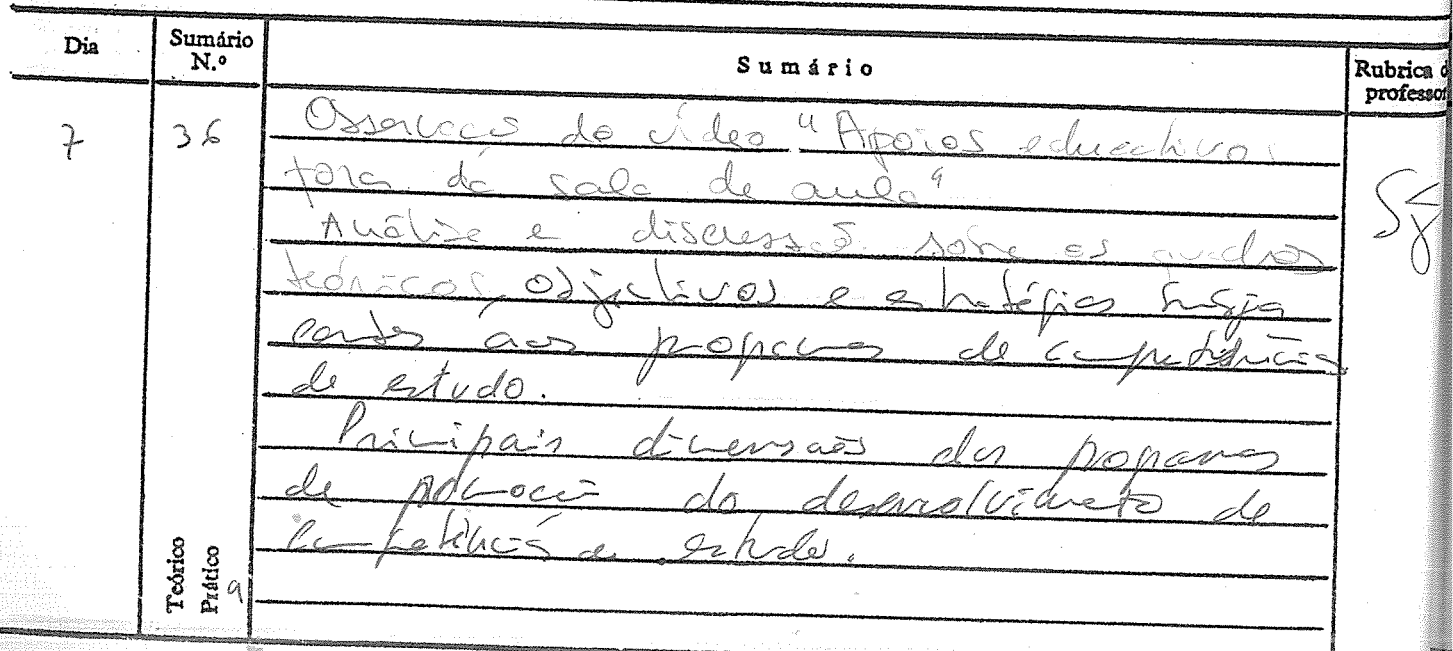 Dia
Sumário
N.º
Sumário
Rubrica d
professor
7
36
Observação do vídeo "Apoios educativos
fora da sala de aula"
Análise e discussão sobre os quadros
teóricos, objectivos e estratégias subja
centes aos programas de competências
de estudo.
Principais dimensões dos programas
de promoção do desenvolvimento de
competências de estudo.
Teórico
Prático